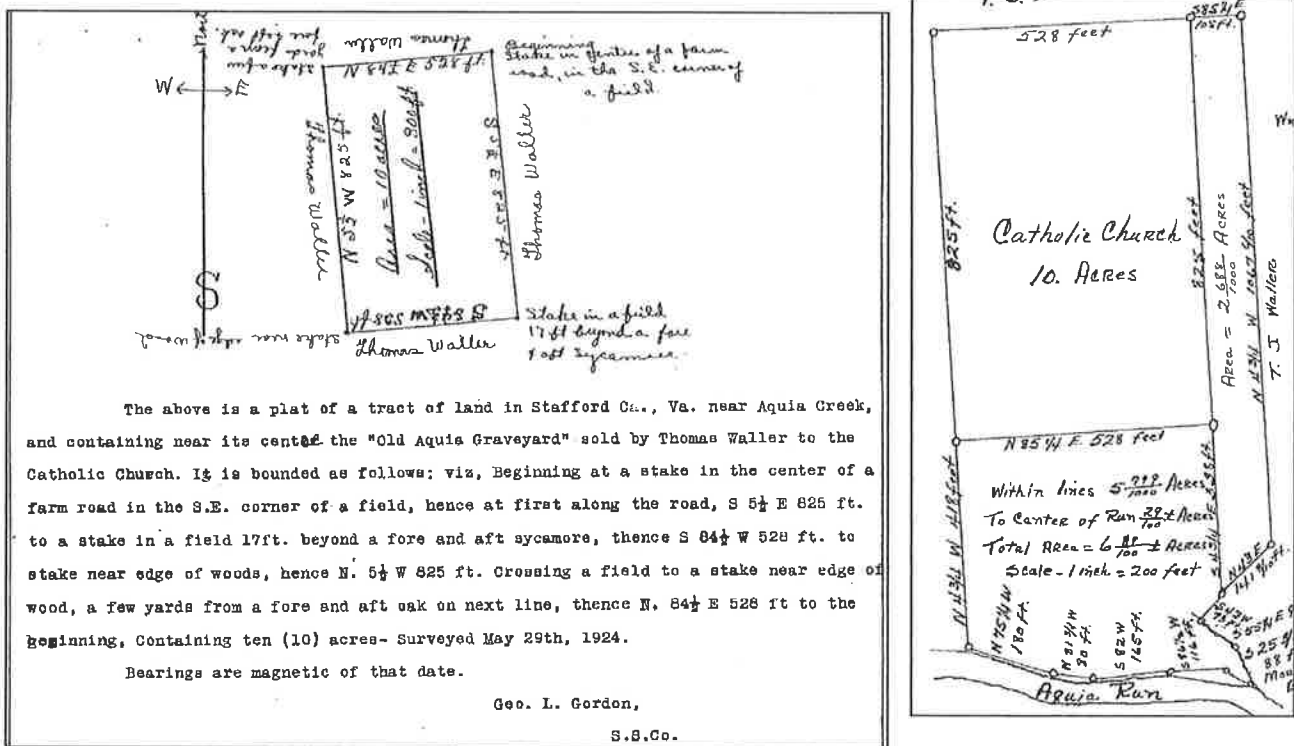 W E
Thomas Waller
N 84½ E 528 ft
Beginning
Stake in Centre of a farm
road, in the S.E. corner of
a field.
Thomas Waller
N 5½ W 825 ft.
Area = 10 acres
Scale - 1 inch = 300 ft
S 5½ E 825 ft.
Thomas Waller
S
S 84½ W 528 ft
stake near edge of wood
Thomas Waller
Stake in a field
17 ft beyond a fore
& aft Sycamore
The above is a plat of a tract of land in Stafford Co., Va. near Aquia Creek,
and containing near its center the "Old Aquia Graveyard" sold by Thomas Waller to the
Catholic Church. It is bounded as follows; viz, Beginning at a stake in the center of a
farm road in the S.E. corner of a field, hence at first along the road, S 5½ E 825 ft.
to a stake in a field 17ft. beyond a fore and aft sycamore, thence S 84½ W 528 ft. to
stake near edge of woods, hence N. 5½ W 825 ft. Crossing a field to a stake near edge of
wood, a few yards from a fore and aft oak on next line, thence N. 84½ E 528 ft to the
beginning, Containing ten (10) acres- Surveyed May 29th, 1924.
Bearings are magnetic of that date.
Geo. L. Gordon,
S.S.Co.
S85¾E
105ft.
528 feet
825 ft.
Catholic Church
10. Acres
825 feet
Area = 2 688/1000 Acres
N 4 3/4 W 1067 6/10 feet
T. J Wallers
N 85¼ E. 528 feet
N 4 3/4 W 418 feet
Within lines 5 799/1000 Acres
To Center of Run 29/100 ± Acres
Total Area = 6 /100 ± Acres
Scale - 1 inch = 200 feet
N 43 E
N 75¼ W
180 ft.
N 81¾ W
80 ft.
S 82 W
165 ft.
S 25
88 f
Aquia Run